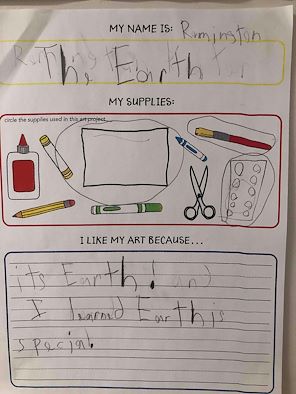 MY NAME IS: Rumington
The Earth
MY SUPPLIES:
circle the supplies used in this art project
I LIKE MY ART BECAUSE...
its Earth! and
I learned Earth is
special.